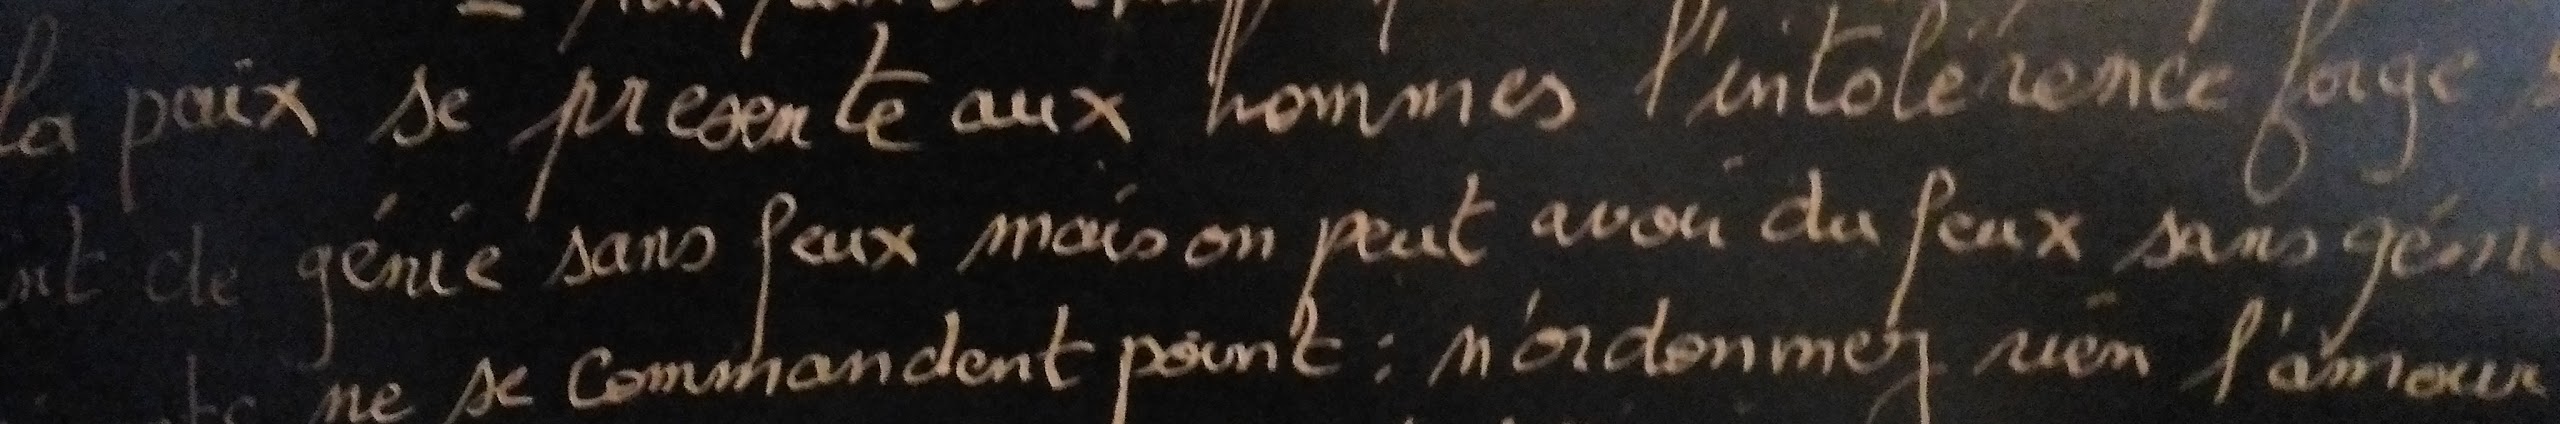 la paix se présente aux hommes l'intolérence forge
de génie sans feux mais on peut avoir du feux sans génie
ne se commandent point : n'ordonnez rien l'amour